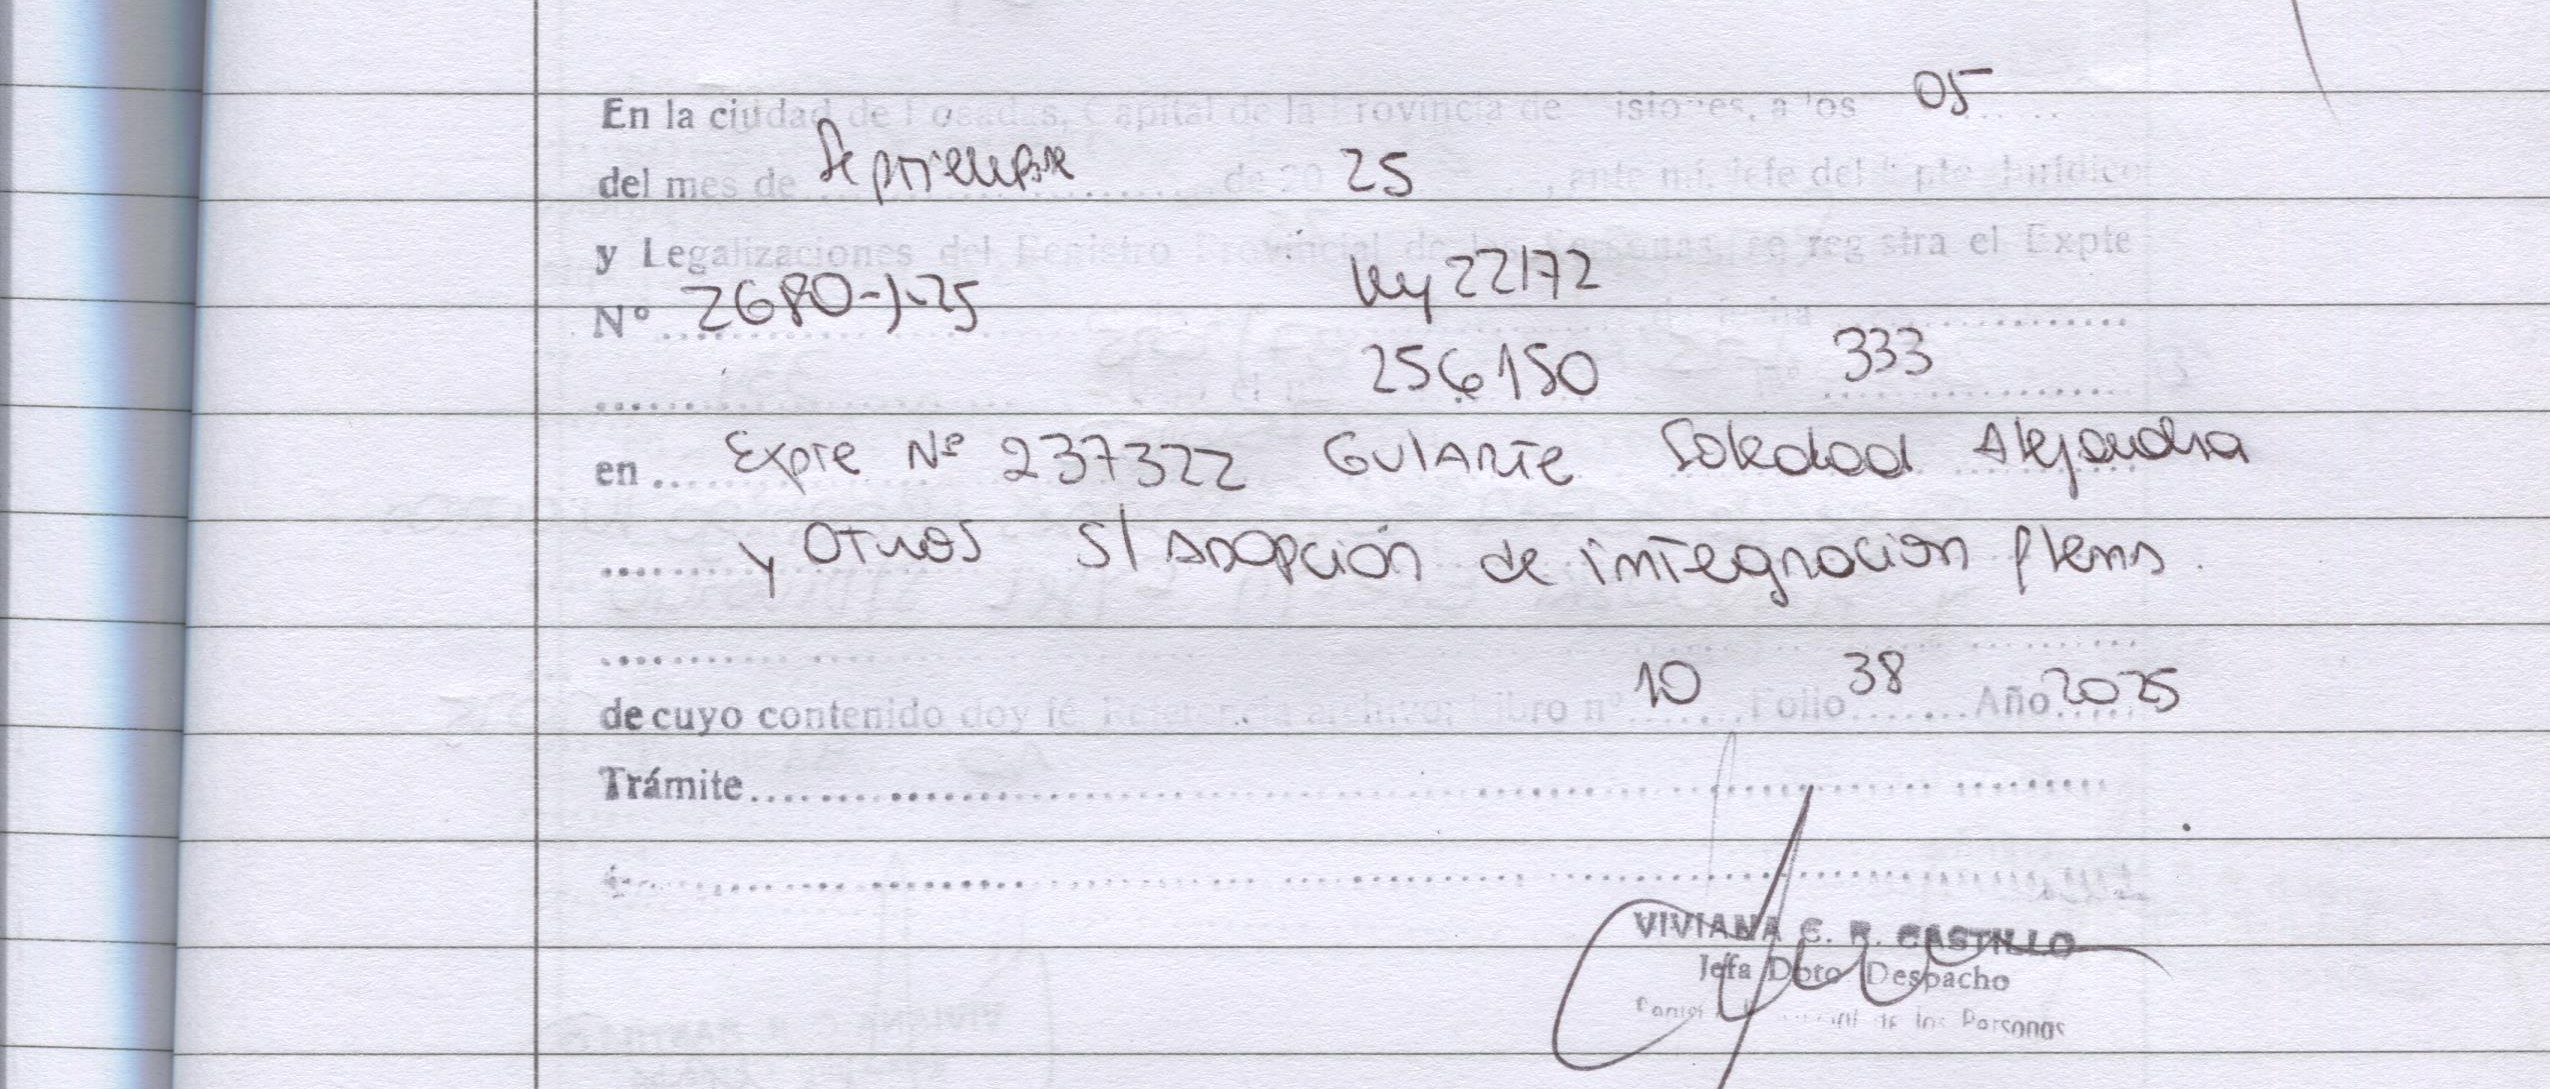 En la ciudad de Posadas, Capital de la Provincia de Misiones, a los 05
del mes de Septiembre de 20 25, ante mi, Jefe del Dpto Jurídico
y Legalizaciones del Registro Provincial de las Personas, se registra el Expte
Nº 2680-J-25 Ley 22172
256150 Nº 333
en Expte Nº 237322 Gularte Soledad Alejandra
y otros S/ Adopción de integracion plena.
de cuyo contenido doy fe Referencia archivo: Libro nº 10 Folio 38 Año 2025
Trámite
VIVIANA C. R. CASTILLO
Jefa Dpto Despacho
de las Personas